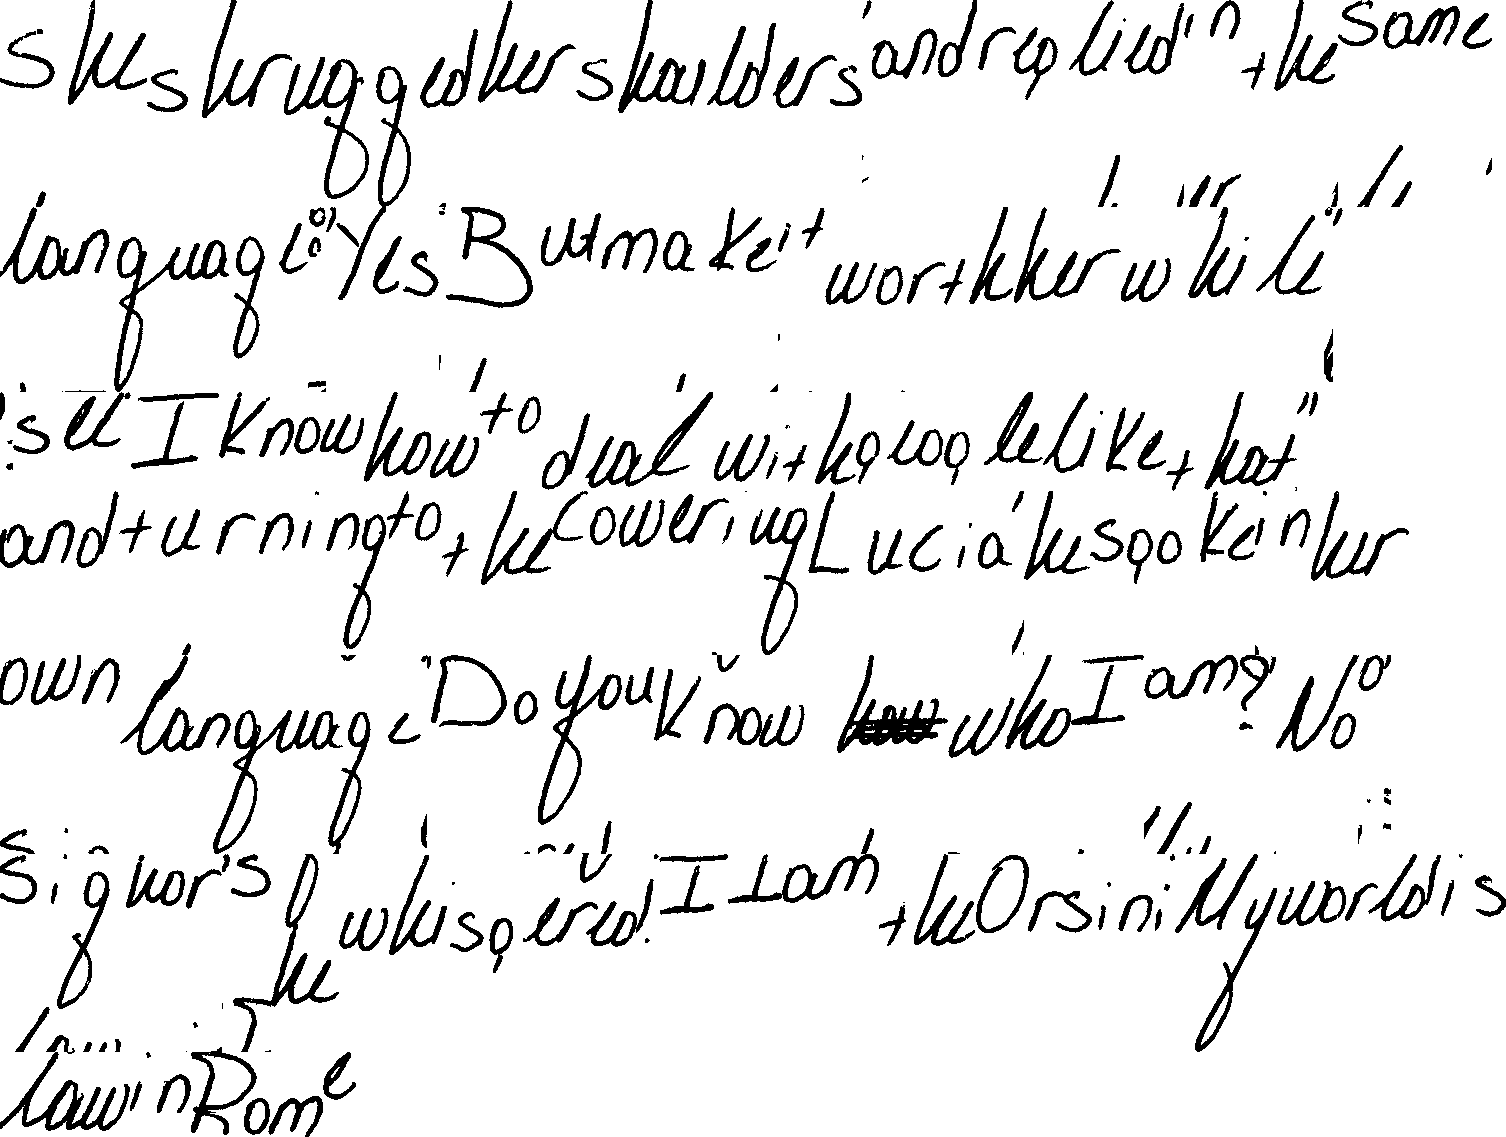 She shrugged her shoulders and replied in the same
language: "Yes. But make it worth her while"
'see I know how to deal with people like that"
and turning to the cowering Lucia he spoke in her
own language "Do you know who I am?" "No
Signor" she whispered. "I am the Orsini. My world is
law in Rome